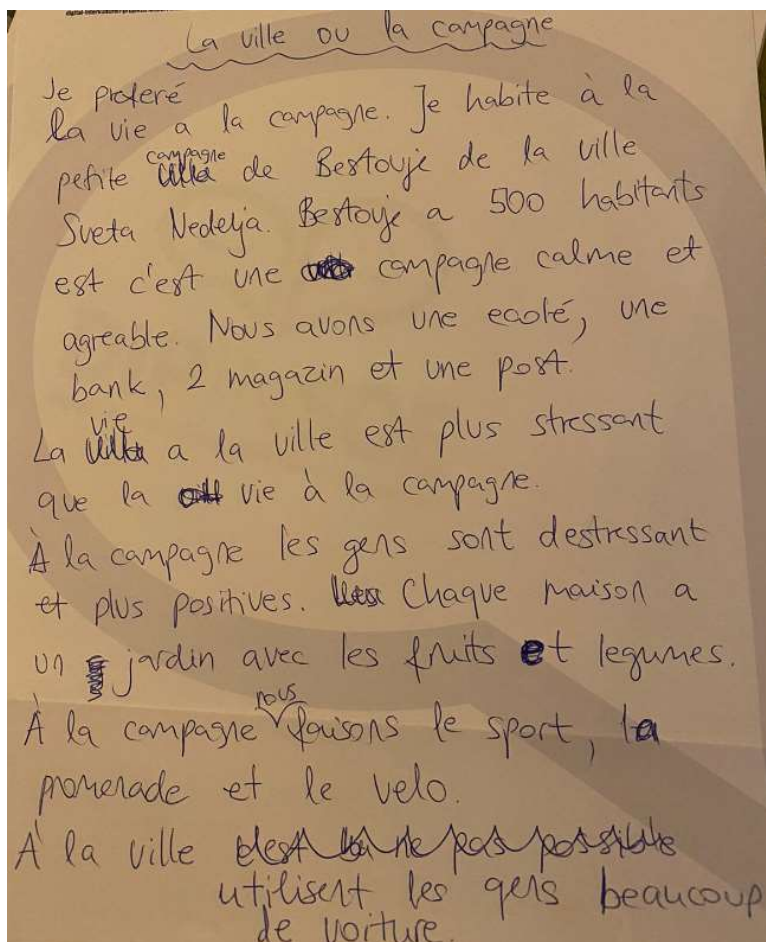 La ville ou la campagne
Je preferé
la vie a la campagne. Je habite à la
petite campagne de Bestovje de la ville
Sveta Nedelja. Bestovje a 500 habitants
est c'est une campagne calme et
agreable. Nous avons une ecolé, une
bank, 2 magazin et une post.
La vie a la ville est plus stressant
que la vie à la campagne.
À la campagne les gens sont destressant
et plus positives. Chaque maison a
un jardin avec les fruits et legumes.
À la campagne nous faisons le sport, la
promenade et le velo.
À la ville
utilisent les gens beaucoup
de voiture.